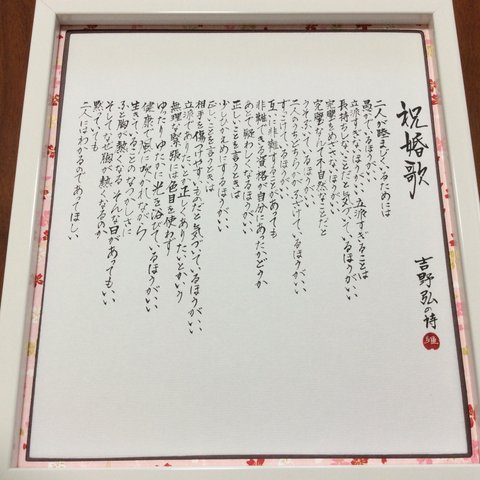 祝婚歌
吉野弘の詩
二人が睦まじくいるためには
愚かでいるほうがいい
立派すぎないほうがいい 立派すぎることは
長持ちしないことだと気づいているほうがいい
完璧をめざさないほうがいい
完璧なんて不自然なことだと
うそぶいているほうがいい
二人のうちどちらかがふざけているほうがいい
ずっこけているほうがいい
互いに非難することがあっても
非難できる資格が自分にあったかどうか
あとで疑わしくなるほうがいい
正しいことを言うときは
少しひかえめにするほうがいい
正しいことを言うときは
相手を傷つけやすいものだと気づいているほうがいい
立派でありたいとか正しくありたいとかいう
無理な緊張には色目を使わず
ゆったりゆたかに光を浴びているほうがいい
健康で風に吹かれながら
生きていることのなつかしさに
ふと胸が熱くなる そんな日があってもいい
そしてなぜ胸が熱くなるのか
黙っていても
二人にはわかるのであってほしい